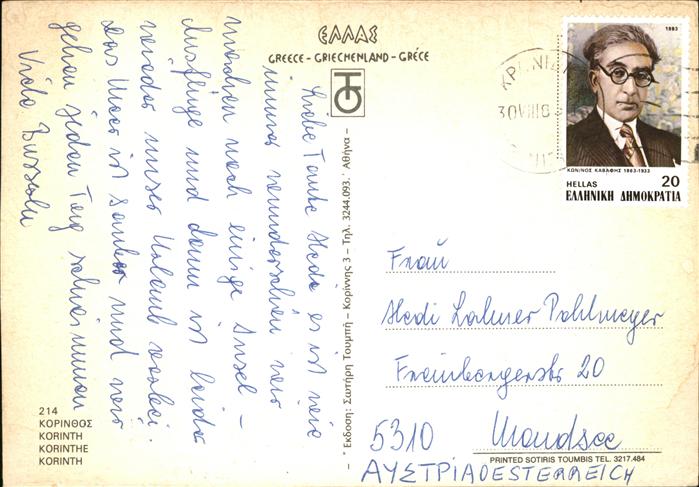 ΕΛΛΑΣ
GREECE - GRIECHENLAND - GRÉCE
Liebe Tante Hedi es ist wie
immer wunderschön wir
machen noch einige Insel -
Ausflüge und dann ist leider
wieder unser Urlaub vorbei.
Das Meer ist sauber und wir
gehen jeden Tag schwimmen
Viele Bussaln
214
ΚΟΡΙΝΘΟΣ
KORINTH
KORINTHE
KORINTH
– Έκδοση: Σωτήρη Τουμπή – Κορίννης 3 – Τηλ. 3244.093. Αθήνα –
30 VIII 8
1983
ΚΩΝ/ΝΟΣ ΚΑΒΑΦΗΣ 1863-1933
HELLAS 20
ΕΛΛΗΝΙΚΗ ΔΗΜΟΚΡΑΤΙΑ
Frau
Hedi Lahner Pohlmeyer
Freinbergerstr 20
5310 Mondsee
PRINTED SOTIRIS TOUMBIS TEL. 3217.484
ΑΥΣΤΡΙΑ OESTERREICH